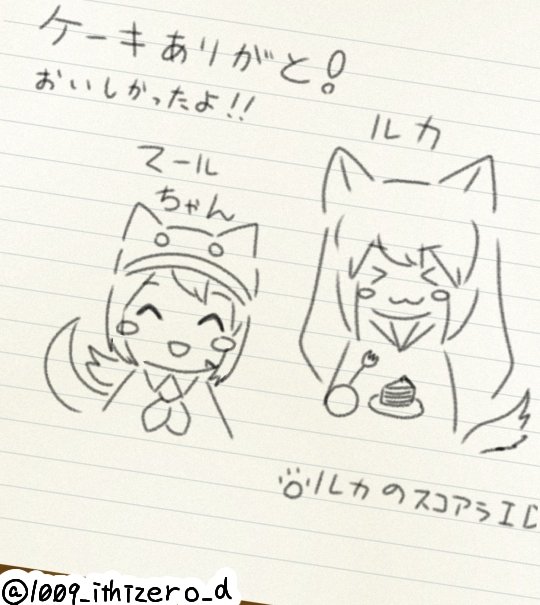 ケーキありがと!
おいしかったよ!!
ルカ
マール
ちゃん
ルカのスコアラID
@1009_ithizero_d